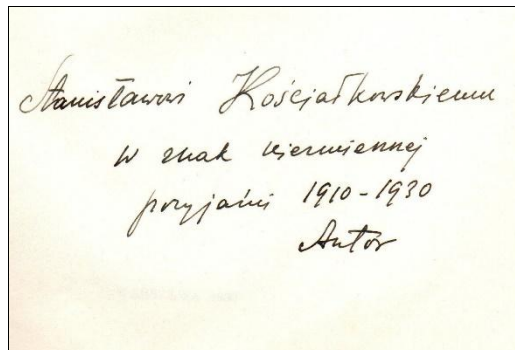 Stanisławowi Kościałkowskiemu
w znak niezmiennej
przyjaźni 1910-1930
Autor